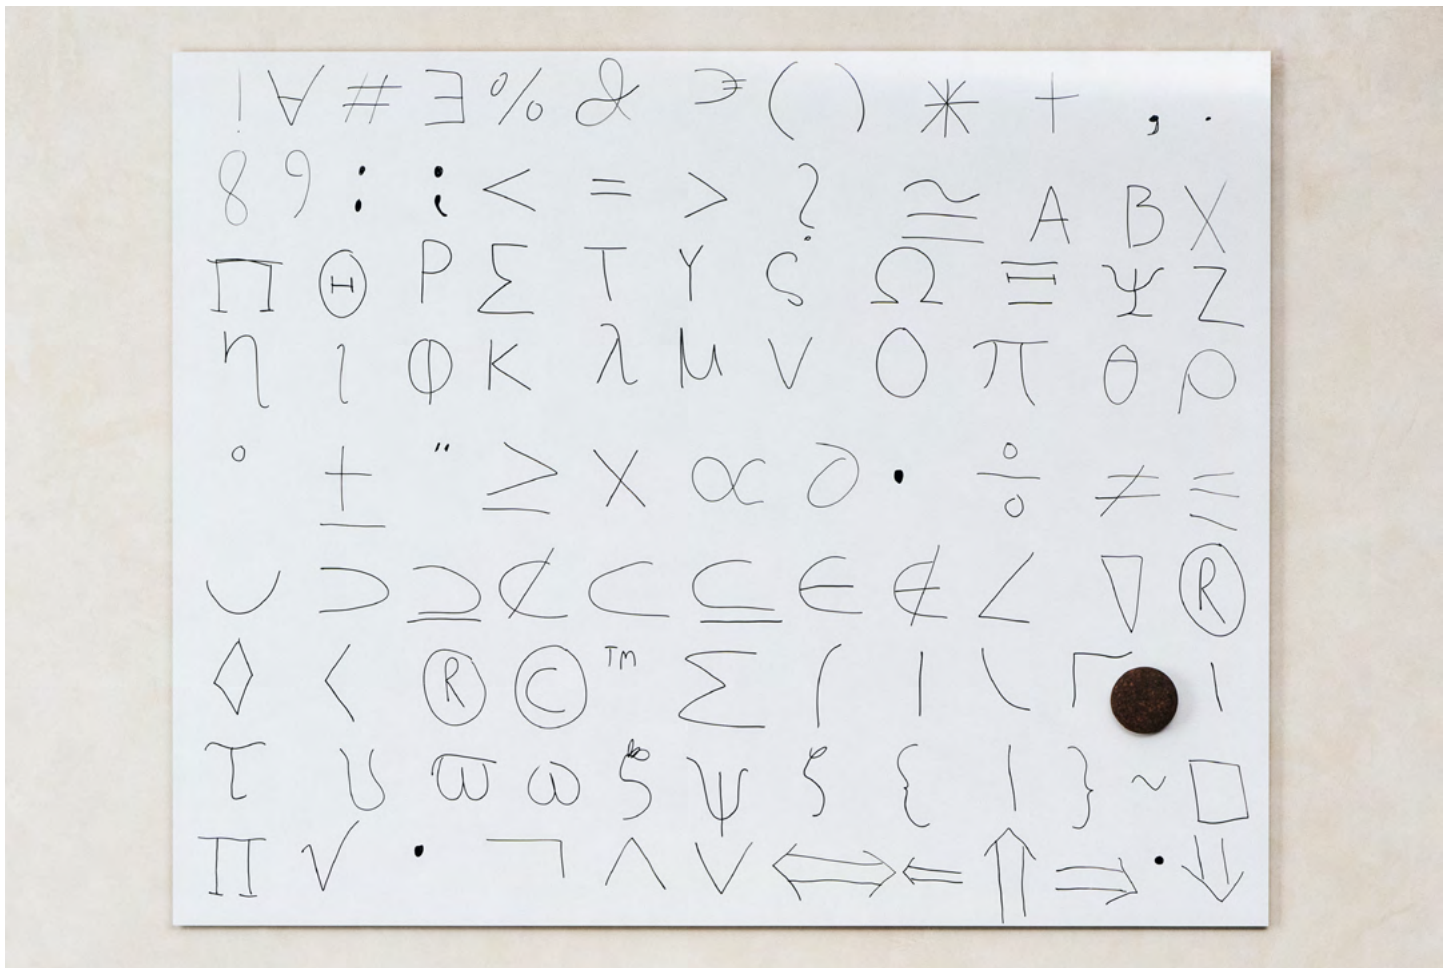 ! ∀ # ∃ % & ∋ ( ) * + , .
8 9 : ; < = > ? ≅ Α Β Χ
Π Θ Ρ Σ Τ Υ ς Ω Ξ Ψ Ζ
η ι φ κ λ μ ν ο π θ ρ
° ± ″ ≥ × ∝ ∂ • ÷ ≠ ≤
∪ ⊃ ⊇ ⊄ ⊂ ⊆ ∈ ∉ ∠ ∇ ®
◊ 〈 ® © ™ ∑ ⎛ ⎜ ⎝ ⎡ |
τ υ ϖ ω ξ ψ ζ { | } ~ □
∏ √ ⋅ ¬ ∧ ∨ ⇔ ⇐ ⇑ ⇒ · ⇓